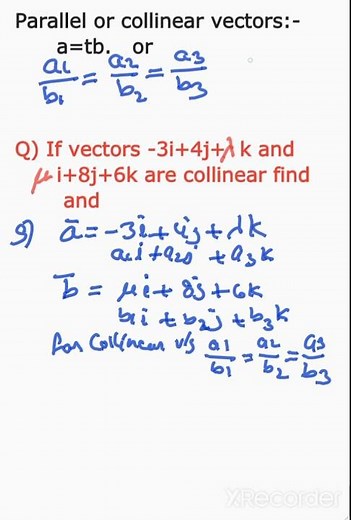 Parallel or collinear vectors:-
a=tb. or
a1/b1 = a2/b2 = a3/b3
Q) If vectors -3i+4j+λ k and
μ i+8j+6k are collinear find
and
a̅ = -3i+4j+λk
a1i+a2j+a3k
b̅ = μi+8j+6k
b1i+b2j+b3k
for Collinear v/s a1/b1 = a2/b2 = a3/b3
XRecorder